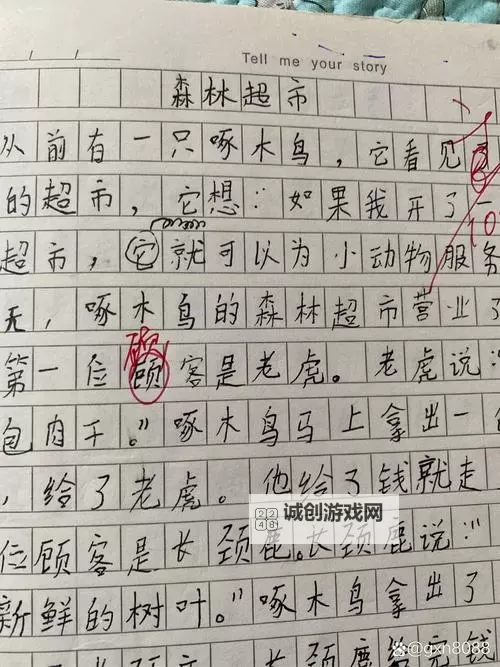 Tell me your story
森林超市
从前有一只啄木鸟，它看见
的超市，它想：如果我开了一
超市，它就可以为小动物服务
天，啄木鸟的森林超市营业了
顾
第一位顾客是老虎。老虎说：
包肉干。”啄木鸟马上拿出一
，给了老虎。他给了钱就走
诚创游戏网
位顾客是长颈鹿。长颈鹿说：“
新鲜的树叶。”啄木鸟拿出了
长颈鹿
@gxn8088